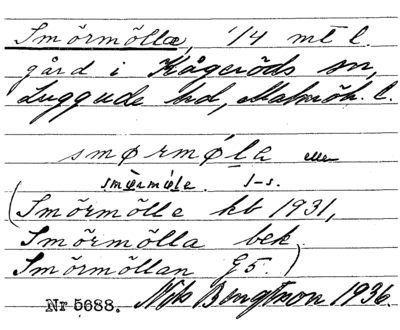 Smörmölla, 1/4 mtl.
gård i Kågeröds sn,
Luggude hd, Malmöh. l.
smørmøla eller
smørmøle. s-s.
(Smörmölle kb 1931,
Smörmölla bek.
Smörmöllan G5.)
Nr 5688. Nils Bengtsson 1936.